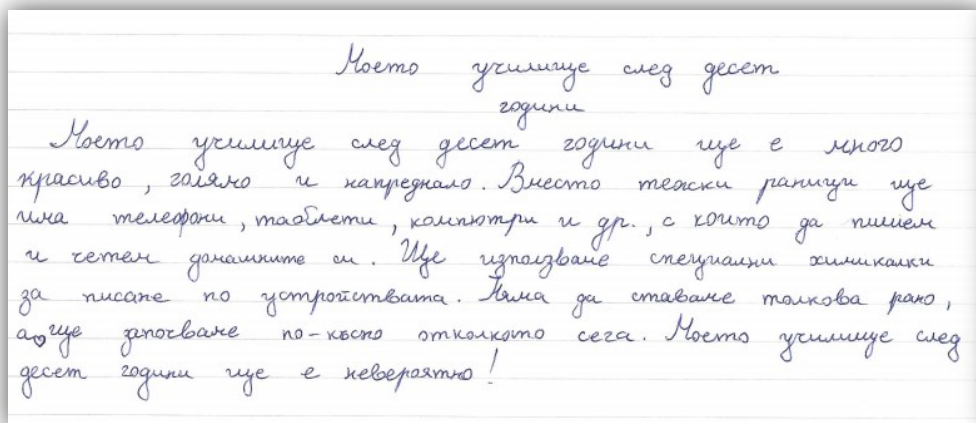 Моето училище след десет
години
Моето училище след десет години ще е много
красиво, голямо и напреднало. Вместо тежски раници ще
има телефони, таблети, компютри и др., с които да пишем
и четем домашните си. Ще използваме специални химикалки
за писане по устройствата. Няма да ставаме толкова рано,
а ще започваме по-късно отколкото сега. Моето училище след
десет години ще е невероятно!